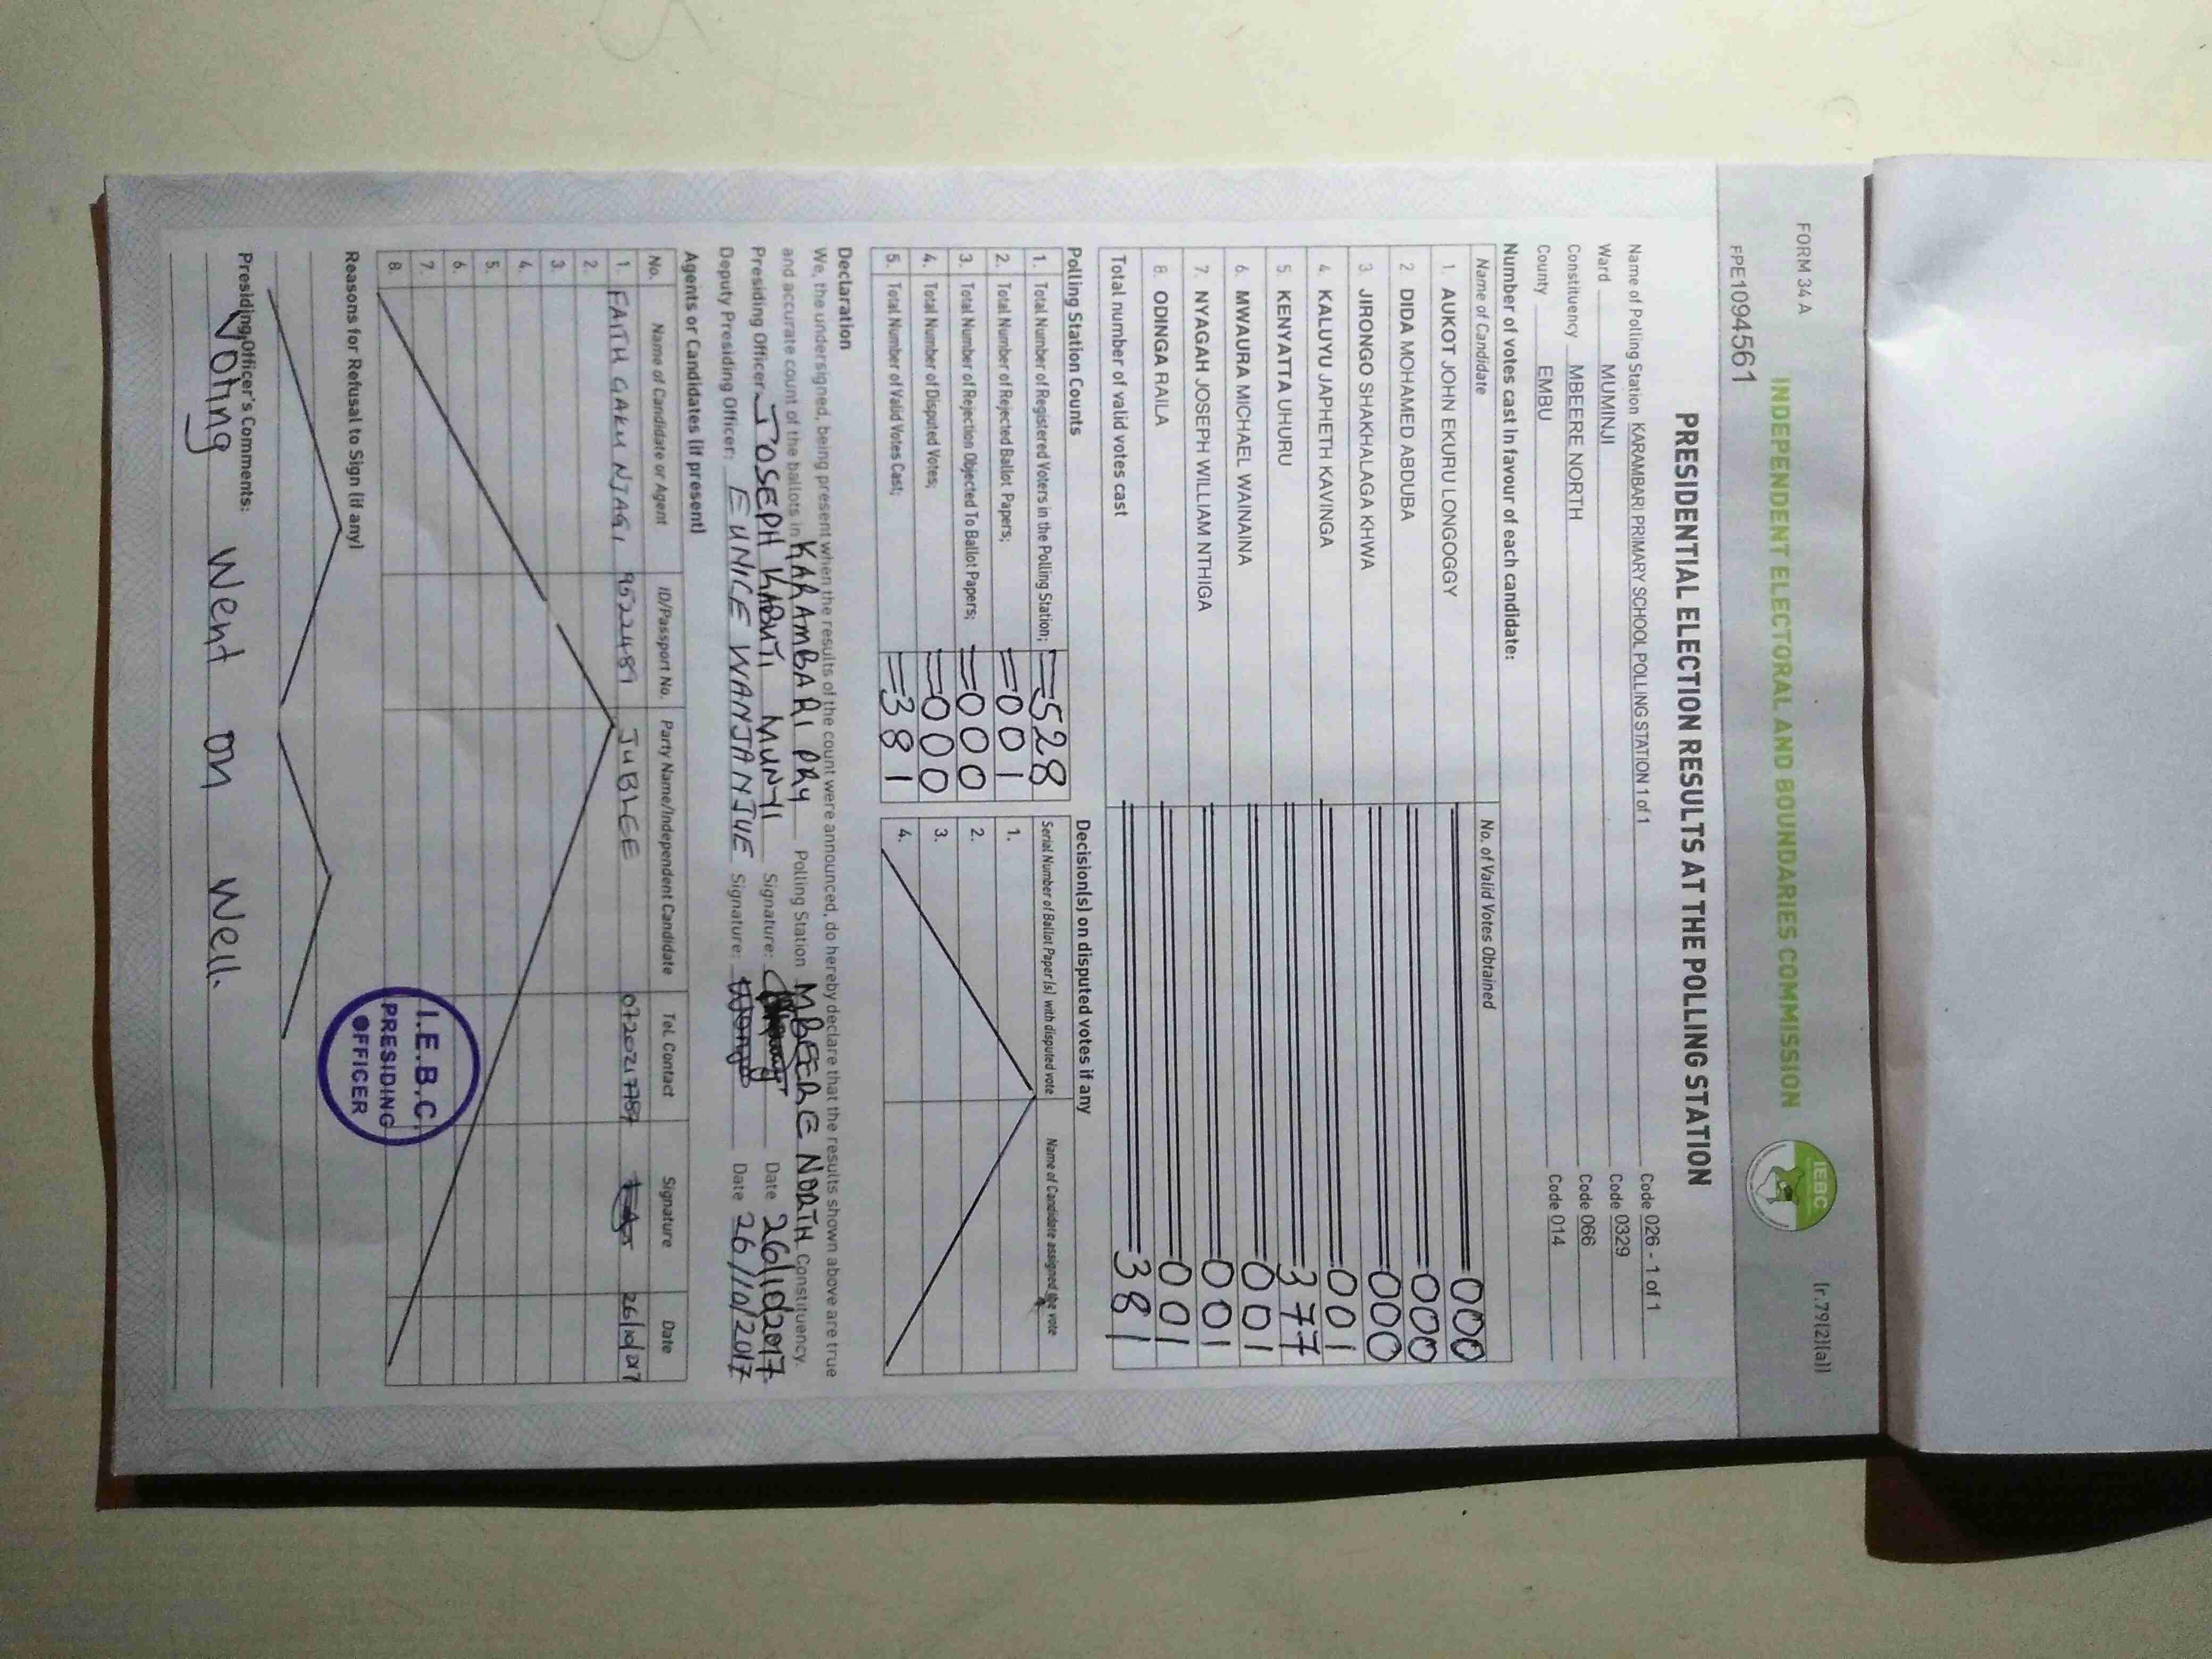 FORM 34 A
(r.79(2)(a))
INDEPENDENT ELECTORAL AND BOUNDARIES COMMISSION
IEBC
FPE1094561
PRESIDENTIAL ELECTION RESULTS AT THE POLLING STATION
Name of Polling Station KARAMBARI PRIMARY SCHOOL POLLING STATION 1 of 1 Code 026 - 1 of 1
Ward MUMINJI Code 0329
Constituency MBEERE NORTH Code 066
County EMBU Code 014
Number of votes cast in favour of each candidate:
Name of Candidate No. of Valid Votes Obtained
1. AUKOT JOHN EKURU LONGOGGY =000
2 DIDA MOHAMED ABDUBA =000
3. JIRONGO SHAKHALAGA KHWA =000
4. KALUYU JAPHETH KAVINGA =001
5. KENYATTA UHURU =377
6. MWAURA MICHAEL WAINAINA =001
7. NYAGAH JOSEPH WILLIAM NTHIGA =001
8. ODINGA RAILA =001
Total number of valid votes cast =381
Polling Station Counts
1. Total Number of Registered Voters in the Polling Station; =528
2. Total Number of Rejected Ballot Papers; =001
3. Total Number of Rejection Objected To Ballot Papers; =000
4. Total Number of Disputed Votes; =000
5. Total Number of Valid Votes Cast; =381
Decision(s) on disputed votes if any
Serial Number of Ballot Paper (s) with disputed vote Name of Candidate assigned the vote
1.
2.
3.
4.
Declaration
We, the undersigned, being present when the results of the count were announced, do hereby declare that the results shown above are true
and accurate count of the ballots in KARAMBARI PRY Polling Station MBEERE NORTH Constituency.
Presiding Officer JOSEPH KABUTI MUNYI Signature: Date 26/10/2017
Deputy Presiding Officer: EUNICE WANJA NJUE Signature: Date 26/10/2017
Agents or Candidates (if present)
No. Name of Candidate or Agent ID/Passport No. Party Name/Independent Candidate Tel. Contact Signature Date
1. FAITH GAKU NJAGI 9522489 JUBLEE 0720217789 26/10/2017
2.
3.
4.
5.
6.
7.
8.
I.E.B.C.
PRESIDING
OFFICER
Reasons for Refusal to Sign (if any)
Presiding Officer's Comments:
Voting went on well.